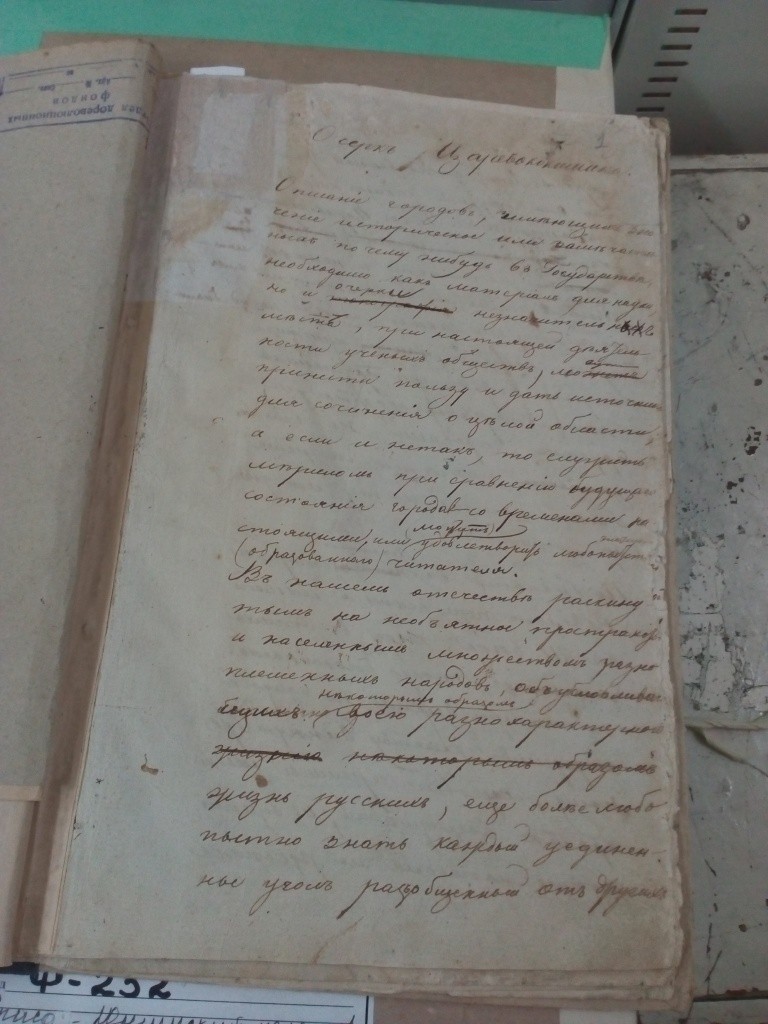 дореволюционных
фондов
1
Очеркъ Царевококшайска.
Описаніе городовъ, имѣющихъ зна
ченіе историческое или замѣчатель
ность по чему нибудь въ Государствѣ,
необходимо какъ матеріалъ для науки,
но и очерки незначительныхъ
мѣстъ, при настоящей дѣятель
ности ученыхъ обществъ, могутъ
принести пользу и дать источникъ
для сочиненія о цѣлой области,
а если и нетакъ, то служить
мѣриломъ при сравненіи будущаго
состоянія городовъ со временами на
стоящими, или могутъ удовлетворить любопытст
(образованнаго) читателя.
Въ нашемъ отечествѣ раскину
тымъ на необъятное пространство
и населенныхъ множествомъ разно
племенныхъ народовъ, обусловливаю
нѣкоторымъ образомъ
щихъ своею разнохарактерной
жизнію нѣкоторымъ образомъ
жизнь русскихъ, еще болѣе любо
пытно знать каждый уединен-
ные уголъ разобщенный отъ другихъ
Ф-252